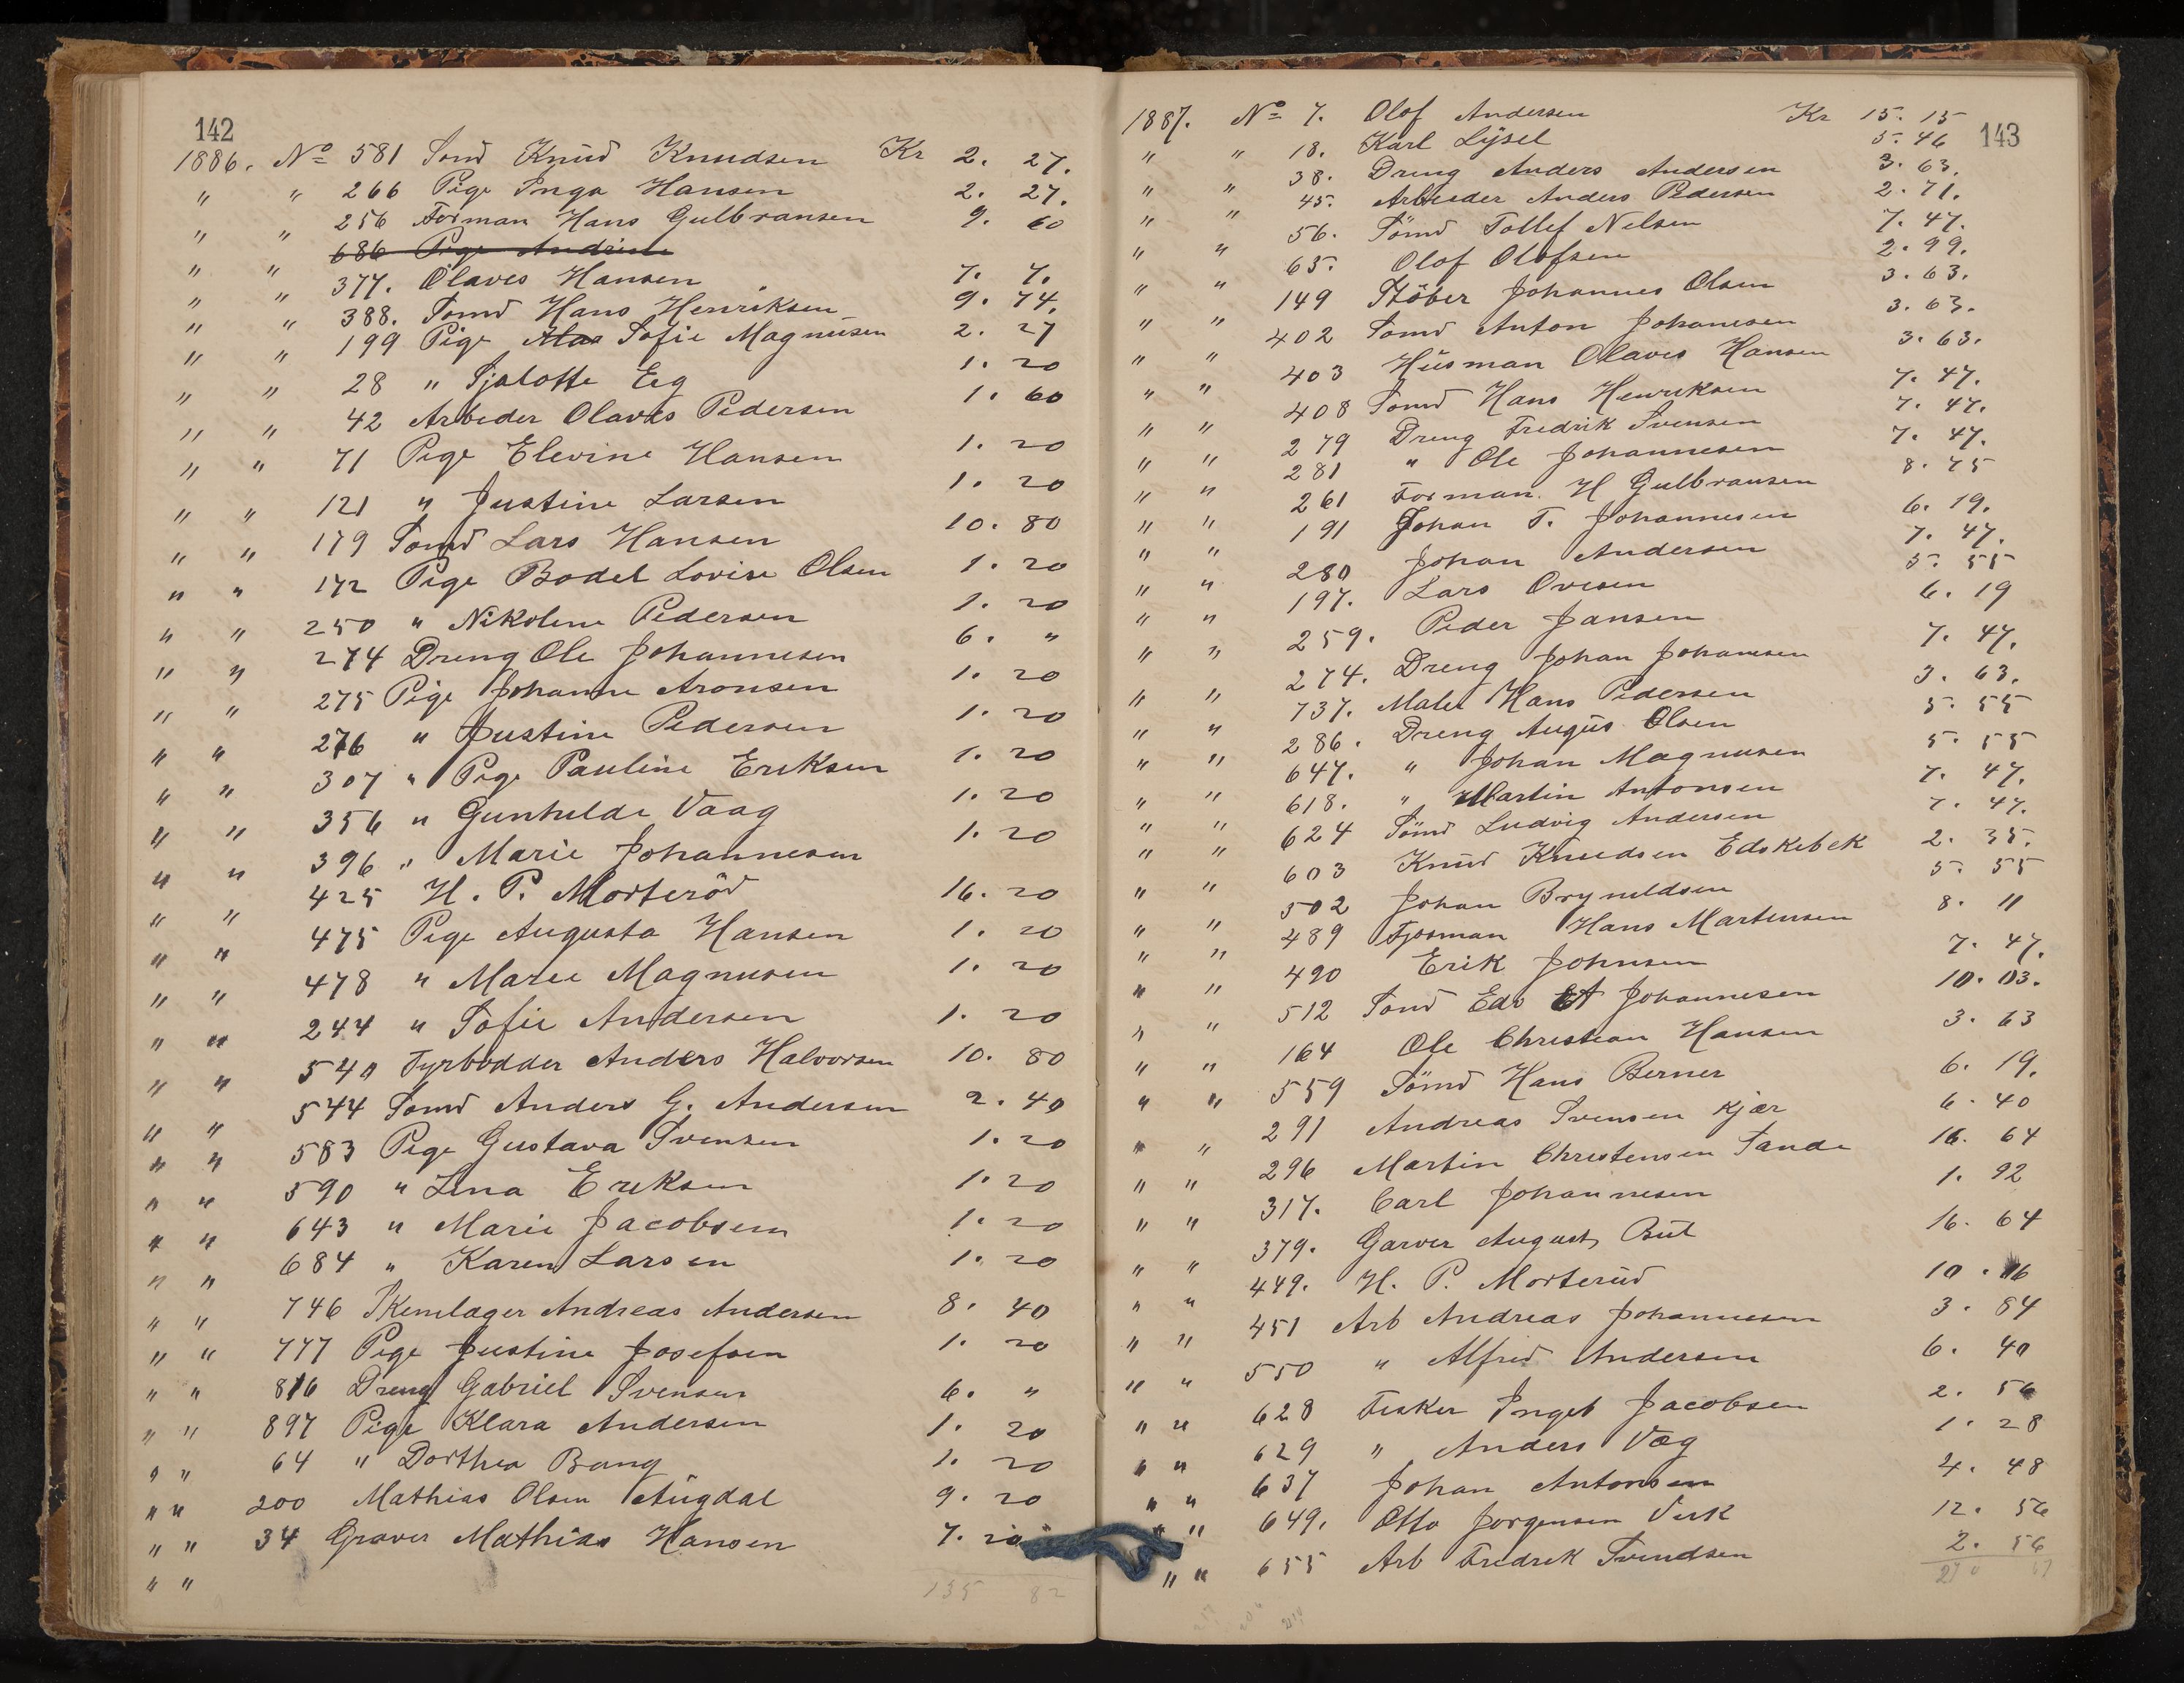 142
1886. No 581 Sömd Knud Knudsen Kr 2. 27.
" " 266 Pige Inga Hansen 2. 27.
" " 256 Forman Hans Gulbransen 9. 60
" " 686 Pige Andrine
" " 377. Olaves Hansen 7. 7.
" " 388. Sömd Hans Henriksen 9. 74.
" " 199 Pige Sofie Magnusen 2. 27
" " 28 " Sjalotte Eeg 1. 20
" " 42 Arbeder Olaves Pedersen 1. 60
" " 71 Pige Elevine Hansen 1. 20
" " 121 " Justine Larsen 1. 20
" " 179 Sömd Lars Hansen 10. 80
" " 172 Pige Bodel Lovise Olsen 1. 20
" " 250 " Nikoline Pedersen 1. 20
" " 274 Dreng Ole Johannesen 6. "
" " 275 Pige Johanne Aronsen 1. 20
" " 276 " Justine Pedersen 1. 20
" " 307 " Pige Pauline Eriksen 1. 20
" " 356 " Gunhilde Vaag 1. 20
" " 396 " Marie Johannesen 1. 20
" " 425 H. P. Morteröd 16. 20
" " 475 Pige Augusta Hansen 1. 20
" " 478 " Maree Magnusen 1. 20
" " 244 " Sofie Andersen 1. 20
" " 540 Fyrbödder Anders Halvorsen 10. 80
" " 544 Sömd Anders G. Andersen 2. 40
" " 583 Pige Gustava Svensen 1. 20
" " 590 " Lina Eriksen 1. 20
" " 643 " Marie Jacobsen 1. 20
" " 684 " Karen Larsen 1. 20
" " 746 Skemlager Andreas Andersen 8. 40
" " 777 Pige Justine Josefsen 1. 20
" " 816 Dreng Gabriel Svensen 6. "
" " 897 Pige Klara Andersen 1. 20
" " 64 " Dorthea Bang 1. 20
" " 200 Mathias Olsen Augdal 9. 20
" " 34 Graver Mathias Hansen 7. 20
" " 135 82
143
1887. No 7. Olof Andersen Kr 15. 15
" " 18. Karl Lysel 5. 46
" " 38. Dreng Anders Andersen 3. 63.
" " 45. Arbeider Anders Pedersen 2. 71.
" " 56. Sömd Tollef Nelsen 7. 47.
" " 65. Olof Olofsen 2. 99.
" " 149 Stöber Johannes Olsen 3. 63.
" " 402 Sömd Anton Johanesen 3. 63.
" " 403 Husman Olaves Hansen 3. 63.
" " 408 Sömd Hans Henriksen 7. 47.
" " 279 Dreng Fredrik Svensen 7. 47.
" " 281 " Ole Johannesen 7. 47.
" " 261 Forman. H Gulbransen 8. 75
" " 191 Johan T. Johannesen 6. 19.
" " 280 Johan Andersen 7. 47.
" " 197. Lars Ovesen 5. 55
" " 259. Peder Jansen 6. 19
" " 274. Dreng Johan Johansen 7. 47.
" " 737. Maler Hans Pedersen 3. 63.
" " 286. Dreng Augus Olsen 5. 55
" " 647. " Johan Magnusen 5. 55
" " 618. " Martin Antonsen 7. 47.
" " 624 Sömd Ludvig Andersen 7. 47.
" " 603 Knud Knudsen Edskebek 2. 35.
" " 502 Johan Bryneldsen 5. 55
" " 489 Fjosman Hans Martensen 8. 11
" " 490 Erik Johnsen 7. 47.
" " 512 Sömd Edv A Johannesen 10. 03.
" " 164 Ole Christian Hansen 3. 63
" " 559 Sömd Hans Berner 6. 19.
" " 291 Andreas Svensen Kjær 6. 40
" " 296 Martin Christensen Sande 16. 64
" " 317. Carl Johannesen 1. 92
" " 379. Garver August But 16. 64
" " 449. H. P. Morterud 10. 16
" " 451 Arb Andreas Johannesen 3. 84
" " 550 " Alfred Andersen 6. 40
" " 628 Fisker Ingeb Jacobsen 2. 56
" " 629 " Anders Vag 1. 28
" " 637 Johan Antonsen 4. 48
" " 649. Otto Jorgensen Verk 12. 56
" " 655 Arb Fredrik Svendsen 2. 56